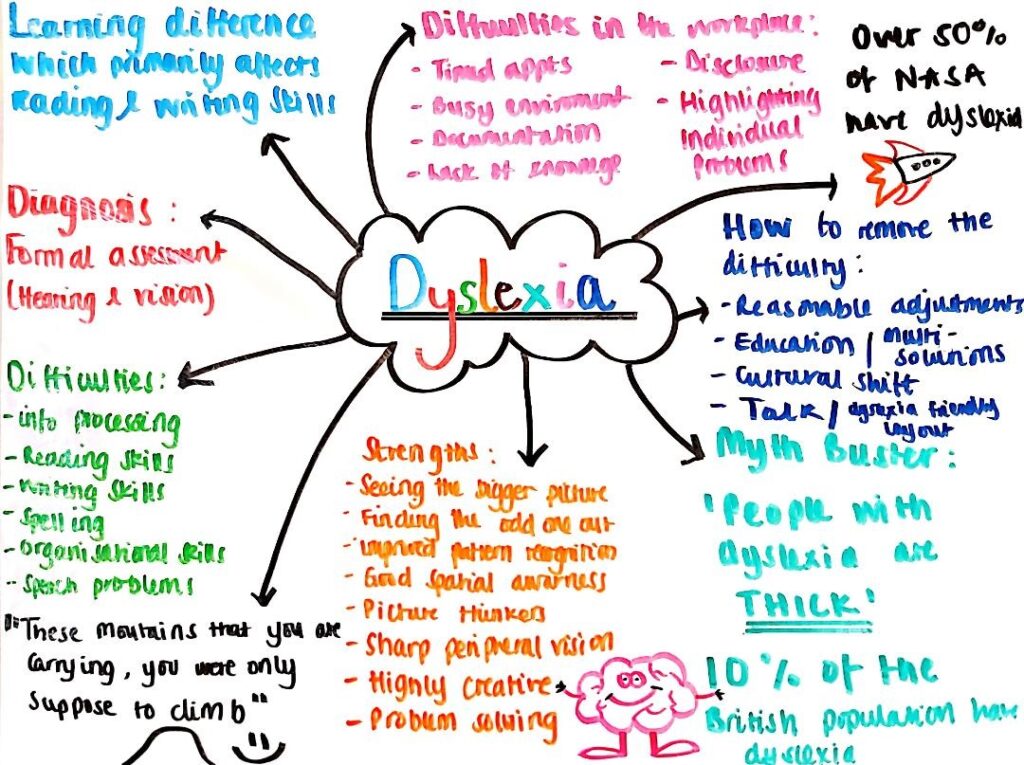 Learning difference
which primarily affects
reading & writing skills
Difficulties in the workplace:
- Timed appts
- Busy enviroment
- Documentation
- Lack of knowledge
- Disclosure
- Highlighting
Individual
Problems
Over 50%
of NASA
have dyslexia
Diagnosis:
Formal assessment
(Hearing & vision)
Dyslexia
How to remove the
difficulty:
- Reasonable adjustments
- Education / multi-
solutions
- Cultural shift
- Talk / dyslexia friendly
layout
Difficulties:
- info processing
- Reading skills
- Writing skills
- Spelling
- Organisational skills
- Speech problems
Strengths:
- Seeing the bigger picture
- Finding the odd one out
- improved pattern recognition
- Good spatial awarness
- Picture thinkers
- Sharp peripheral vision
- Highly creative
- Problem solving
Myth Buster:
'People with
dyslexia are
THICK'
10% of the
British population have
dyslexia
"These moutains that you are
carrying, you were only
suppose to climb"